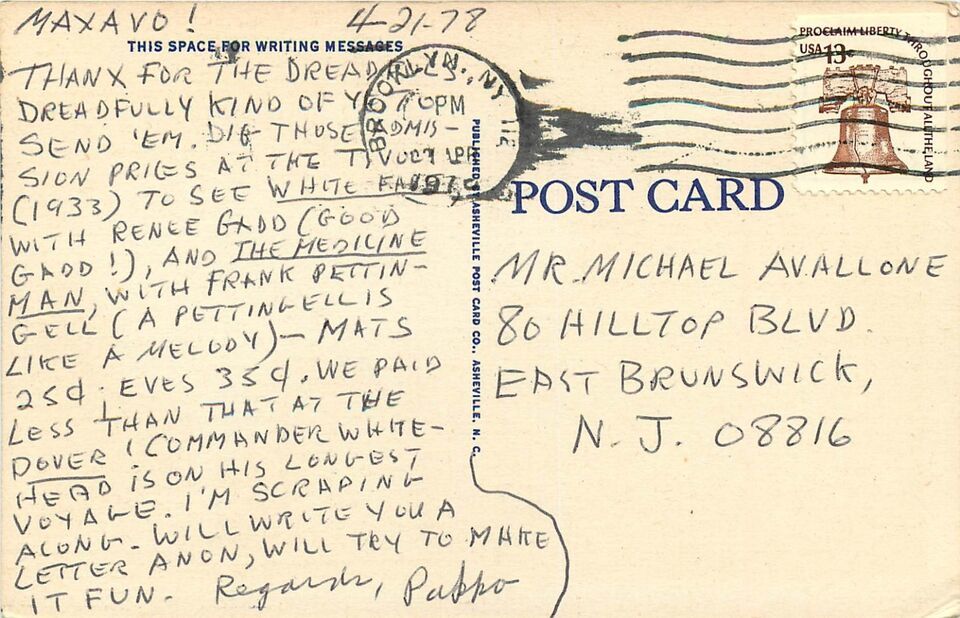 MAXAVO! 4-21-78
THIS SPACE FOR WRITING MESSAGES
THANX FOR THE DREAD
DREADFULLY KIND OF
SEND 'EM. DIG THOSE ADMIS-
SION PRICES AT THE TIVOLI
(1933) TO SEE WHITE FACE
WITH RENEE GADD (GOOD
GADD!), AND THE MEDICINE
MAN, WITH FRANK PETTIN-
GELL (A PETTINGELL IS
LIKE A MELODY) — MATS
25¢. EVES 35¢. WE PAID
LESS THAN THAT AT THE
DOVER! COMMANDER WHITE-
HEAD IS ON HIS LONGEST
VOYAGE. I'M SCRAPING
ALONG. WILL WRITE YOU A
LETTER ANON, WILL TRY TO MAKE
IT FUN. Regards, Pappo
BROOKLYN, NY
PM
PUBLISHED ASHEVILLE POST CARD CO., ASHEVILLE, N. C.
PROCLAIM LIBERTY THROUGHOUT ALL THE LAND
USA 13c
POST CARD
MR. MICHAEL AVALLONE
80 HILLTOP BLVD.
EAST BRUNSWICK,
N. J. 08816